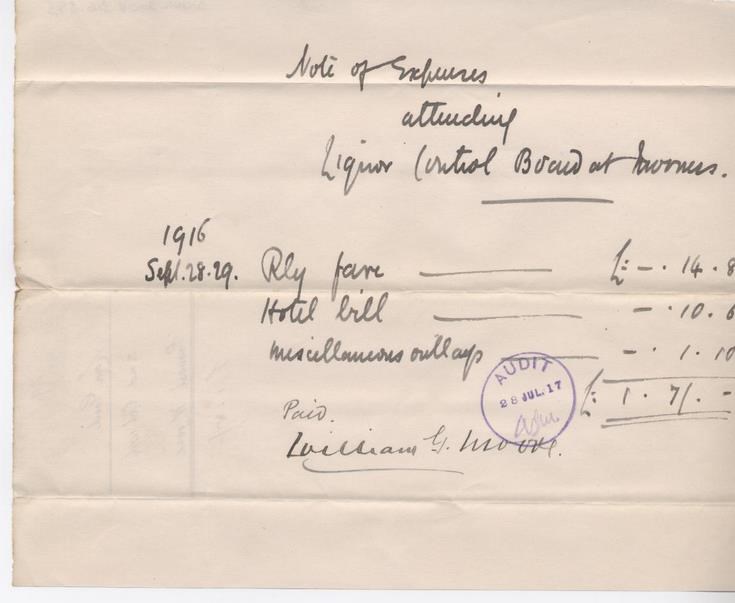 Note of Expenses
attending
Liquor Control Board at Inverness.
1916
Sept. 28.29. Rly fare £: - . 14 . 8
Hotel bill - . 10 . 6
Miscellaneous outlays - . 1 . 10
£: 1 . 7/. -
AUDIT
28 JUL. 17
Paid.
William G. Moore.